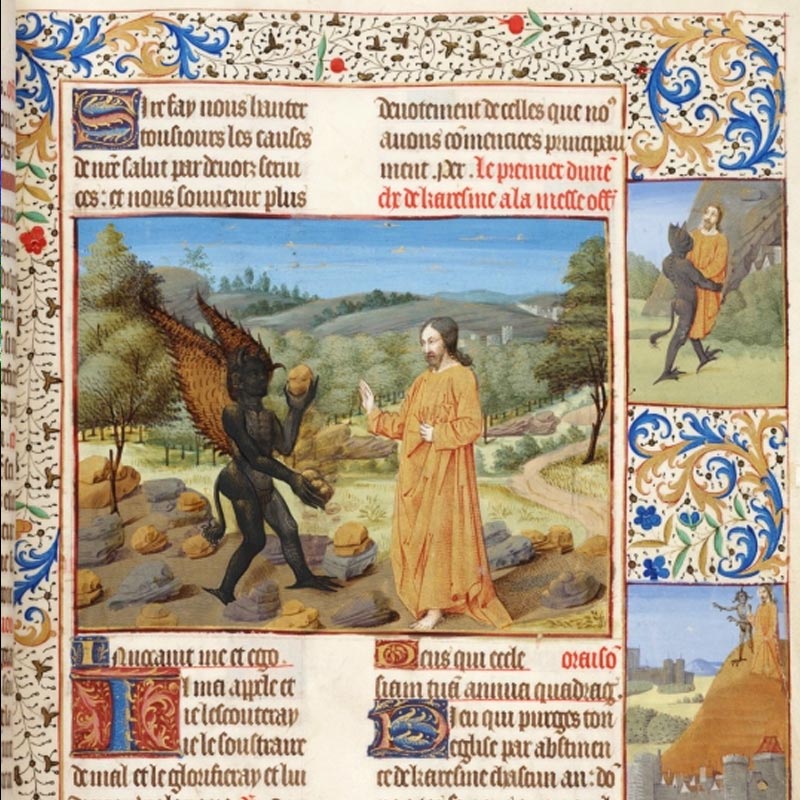 Sire fay nous hanter
tousiours les causes
de nr̃e salut par deuotz serui
ces: et nous souuenir plus
deuotement de celles que noꝰ
auons cõmenciees principau
ment. Per. Le premier dimẽ
che de karesme a la messe off̃
Inuocauit me et ego.
Il ma appele et
ie lescouteray
ie le soustraire
de mal et le glorifieray et lui
Deus qui eccle oraisõ
siam tuã annua quadrag̃.
Dieu qui purges ton
eglise par abstinen
ce de karesme chascun an: dõ